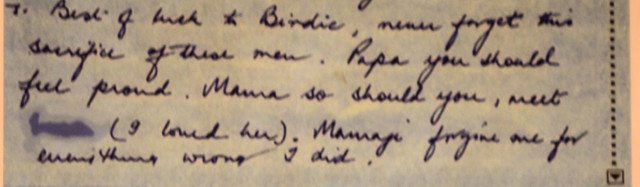 7. Best of luck to Birdie, never forget this
sacrifice of these men. Papa you should
feel proud. Mama so should you, meet
(I loved her). Mamaji forgive me for
everything wrong I did.